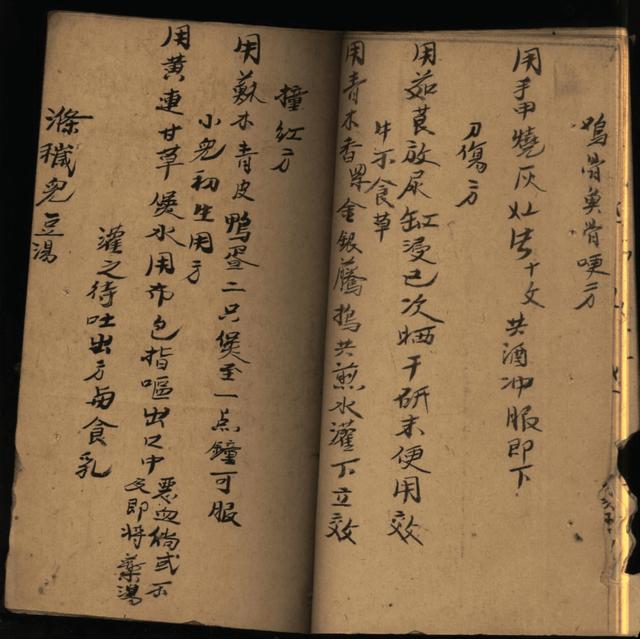 鸡骨魚骨哽方
用手甲燒灰灶生十文共酒冲服即下
刀傷方
用茹莨放尿缸浸七次晒干研末便用效
牛不食草
用青木香罩金銀藤搗共煎水灌下立效
撞紅方
用蘇木青皮鴨蛋二只煲至一点鐘可服
小兒初生用方
用黄連甘草煲水用布包指嘔出口中惡血倘或不
及即将藥湯
灌之待吐出方与食乳
滌穢免豆湯